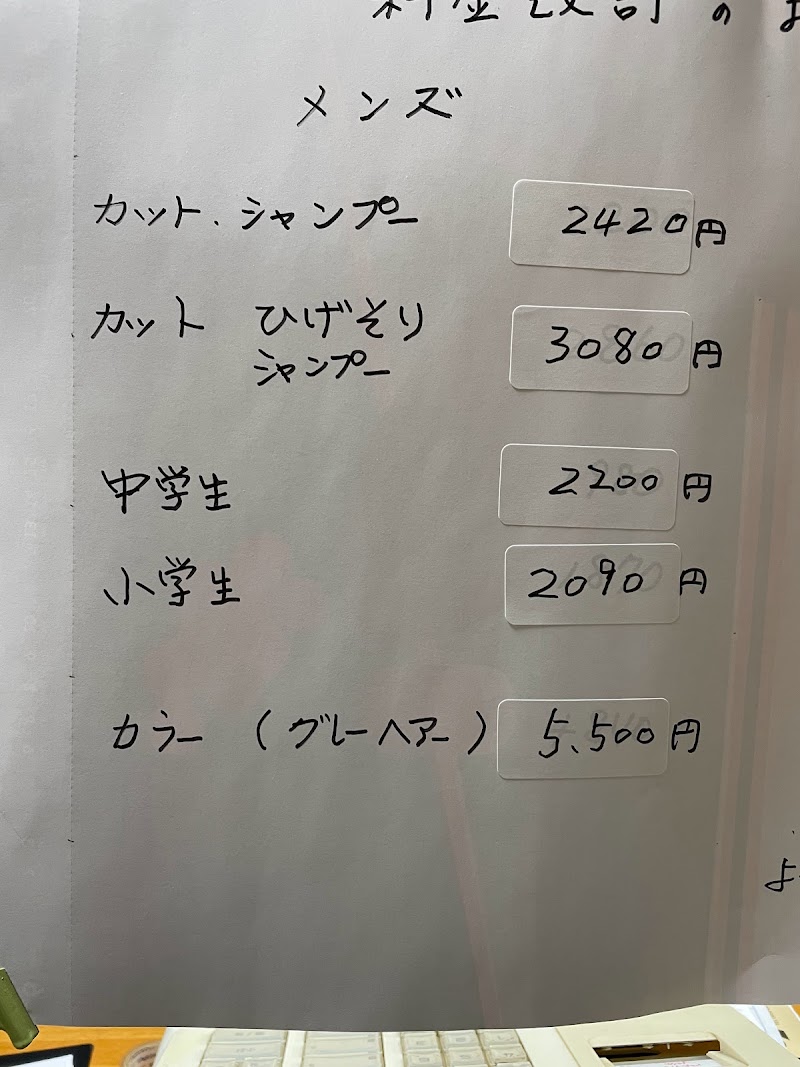 料金改訂のお
メンズ
カット、シャンプー 2420円
カット ひげそり 3080円
シャンプー
中学生 2200円
小学生 2090円
カラー (グレーヘアー) 5.500円
よ